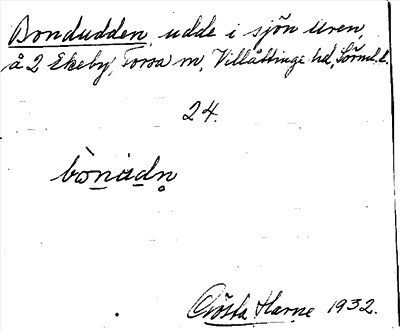 Bondudden, udde i sjön Uren,
å 2 Ekeby, Torsa sn, Villåttinge hd, Sörml. l.
24.
bònúdn̥
Gösta Harne 1932.